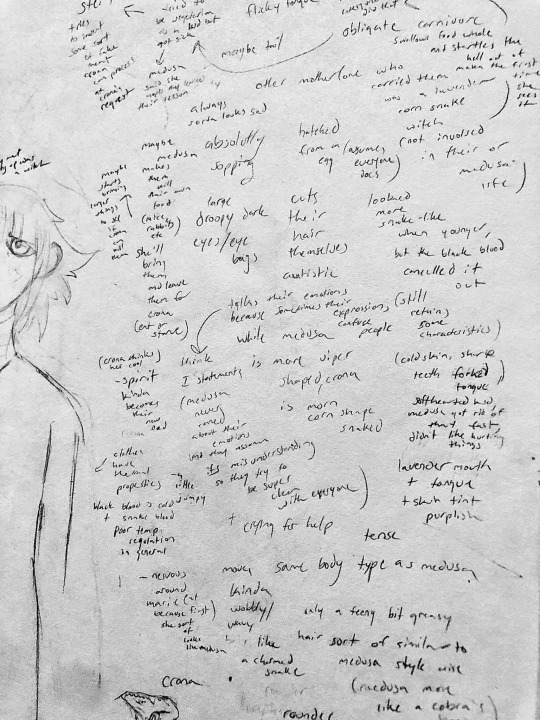 tries
to
some sort
of
meat
crona can process
at
crona's
request
to
be vegetarian
as a kid but
got sick
medusa
said she
their
reason
flicky tongue
maybe tail
obligate carnivore
swallows food whole
and startles the
hell out of
maka the first
time
she
sees
it
other mother/one who
carried them
was a lavender
corn snake
witch
(not involved
in their or
medusa's
life)
always
sorta looks sad
absolutly
sopping
large
droopy dark
eyes/eye
bags
hatched
from a
egg
(assumes
everyone
does)
cuts
their
hair
themselves
autistic
looked
more
snake-like
when younger,
but the black blood
cancelled it
out
(still
retains
some
characteristics)
(cold skin, sharp
teeth forked
tongue)
was
a witch
maybe
starts
bringing
larger
things
to see
if
crona
will
them
maybe
medusa
makes
them
kill
their own
food
(mice
rabbits
etc
she'll
bring
them
and leave
them for
crona
(eat or
starve)
talks their emotions
because sometimes their
expressions
confuse
people
while medusa
is more viper
shaped, crona
is more
corn snake
shaped
think
I statements
(medusa
never
cared
about their
emotions
and they assume
its misunderstanding
so they try to
be super
clear
with everyone)
softhearted
medusa got rid of
that fast,
didn't like hurting
things
(crona thinks
hes cool
-spirit
kinda
becomes
their
new
dad
clothes
have
the same
properties
little
jumpy
black blood is cold
+ snake blood
poor temp
regulation
in general
+
crying for help
lavender mouth
+ tongue
+ skin tint
purplish
tense
- nervous
around
marie (at
because first)
she sort
of
looks
like medusa
moves
kinda
wobbly/
wavy
like
a charmed
snake
same body type as medusa
only a teeny bit greasy
hair sort of similar to
medusa style wise
(medusa more
like a cobra's
rounder
Crona